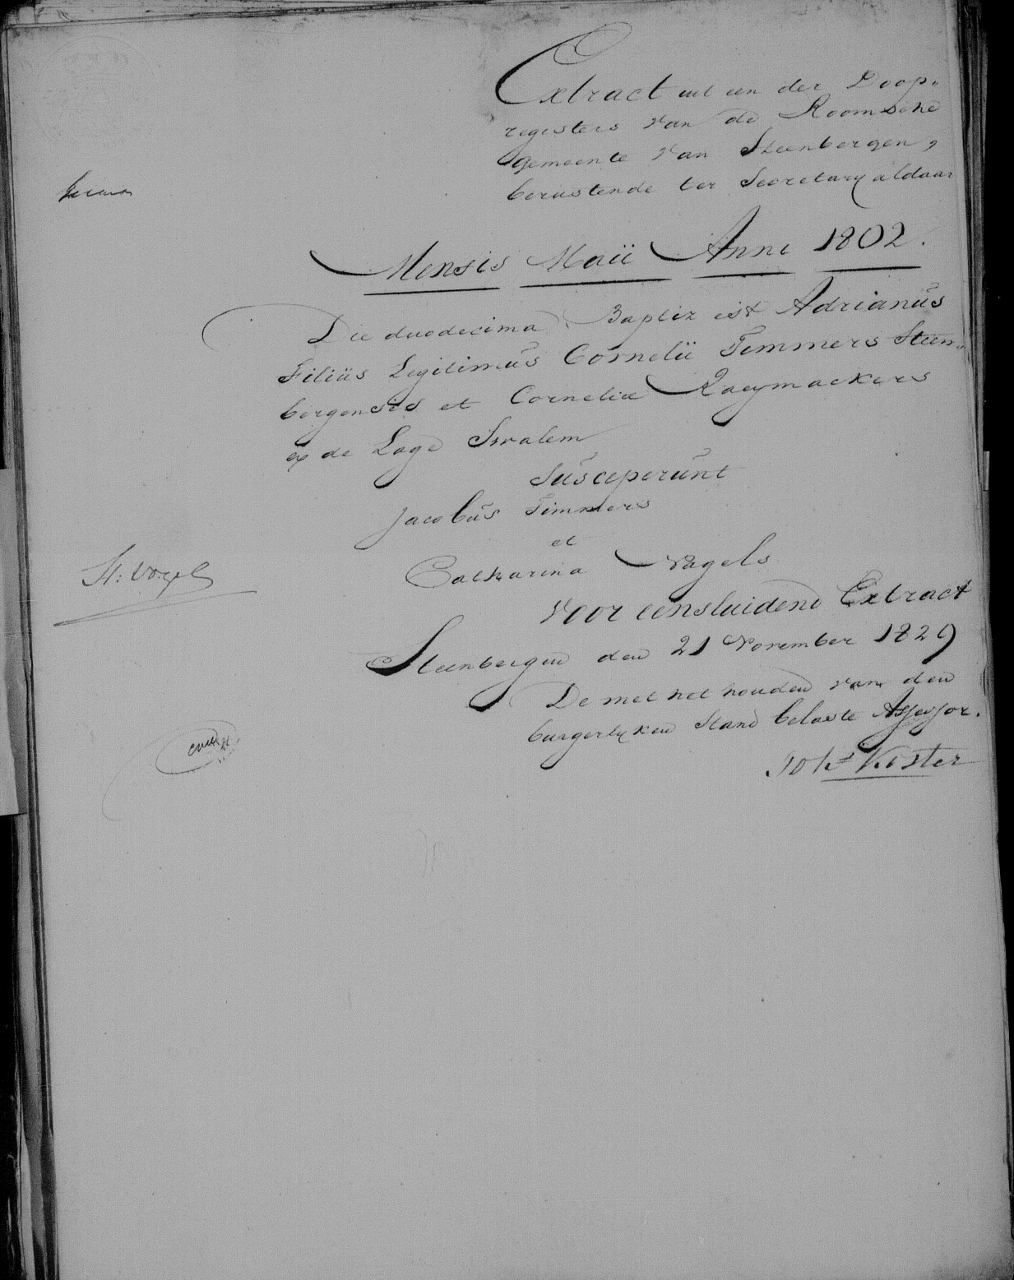 Extract uit een der Doop-
registers van de Roomsche
gemeente van Steenbergen,
berustende ter Secretary aldaar
Mensis Maii Anni 1802.
Die duodecima Baptiz est Adrianus
Filius Legitimus Cornelii Temmers Steen-
bergensis et Cornelia Raeymackers
ex de Lage
Susceperunt
Jacobus Timmers
et
Catharina Nagels
St: Vogel
Voor eensluidend Extract
Steenbergen den 21 November 1829
De met het houden van den
burgerlyken Stand belaste Assessor.
Joh^s Koster